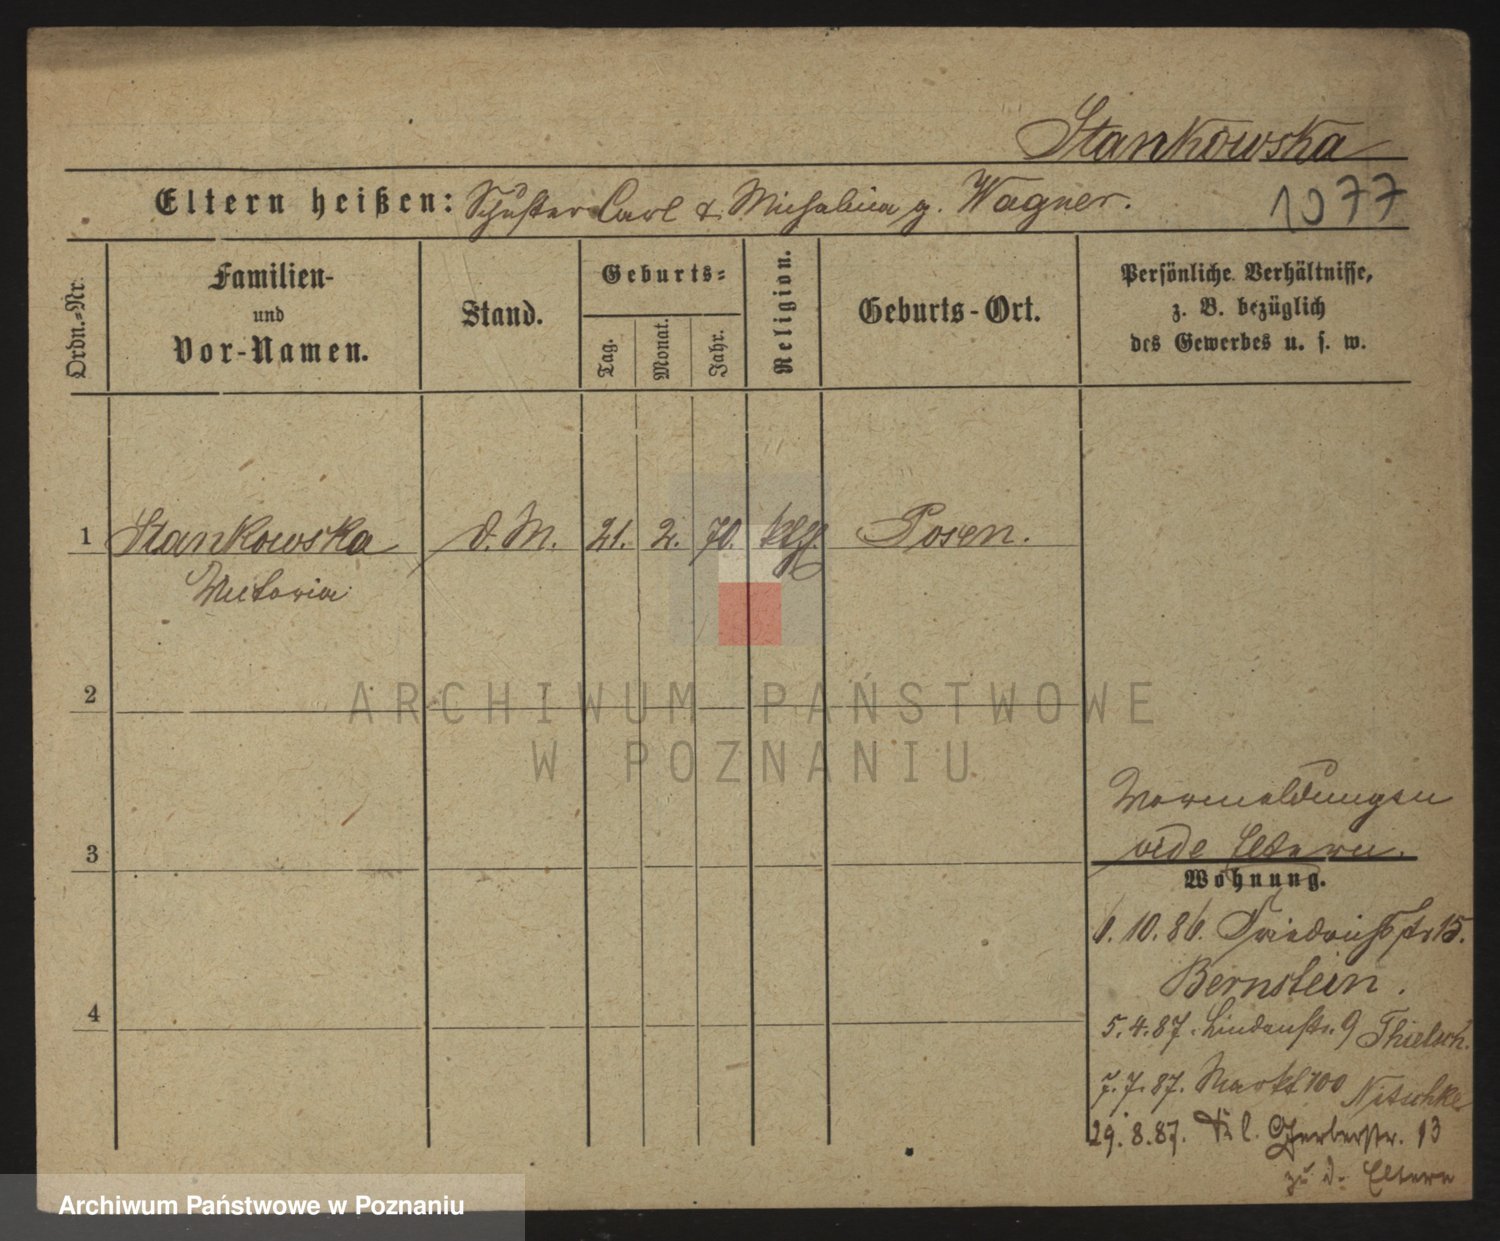 Stankowska
Eltern heißen: Schuster Carl & Michalina g. Wagner.
1077
Ordn.-Nr.
Familien-
und
Vor-Namen.
Stand.
Geburts-
Tag.
Monat.
Jahr.
Religion.
Geburts-Ort.
Persönliche Verhältnisse,
z. B. bezüglich
des Gewerbes u. s. w.
1 Stankowska d. M. 21. 2. 70. Posen.
Victoria
2
ARCHIWUM PAŃSTWOWE
W POZNANIU
3
4
Vormeldungen
vide Eltern.
Wohnung.
6.10.86. Friedrichstr 15.
Bernstein.
5.4.87. Lindenstr. 9 Thielsch.
7.7.87. Markt 100 Nitschke
29.8.87. Kl. Gerberstr. 13
zu d. Eltern
Archiwum Państwowe w Poznaniu